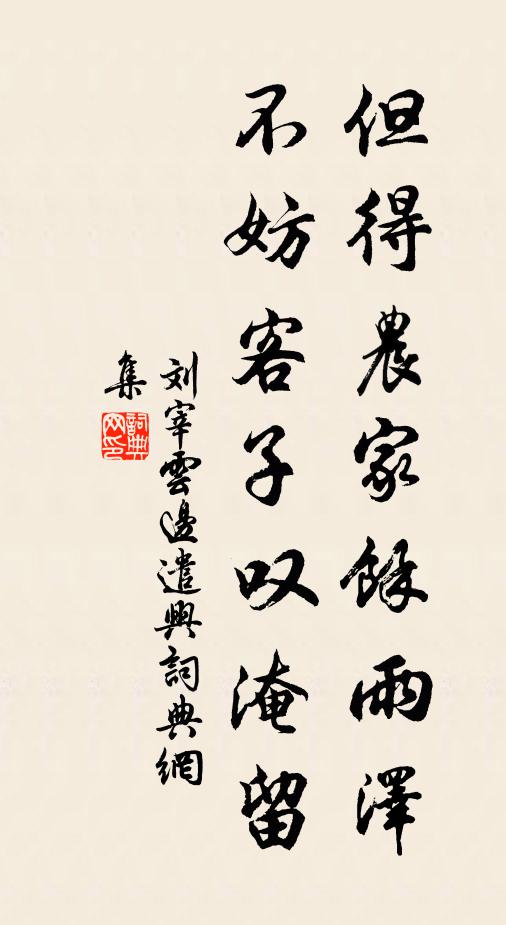 但得農家餘雨澤
不妨客子叹淹留
刘宰雲邊遣興詞典網
集
詞典
网印